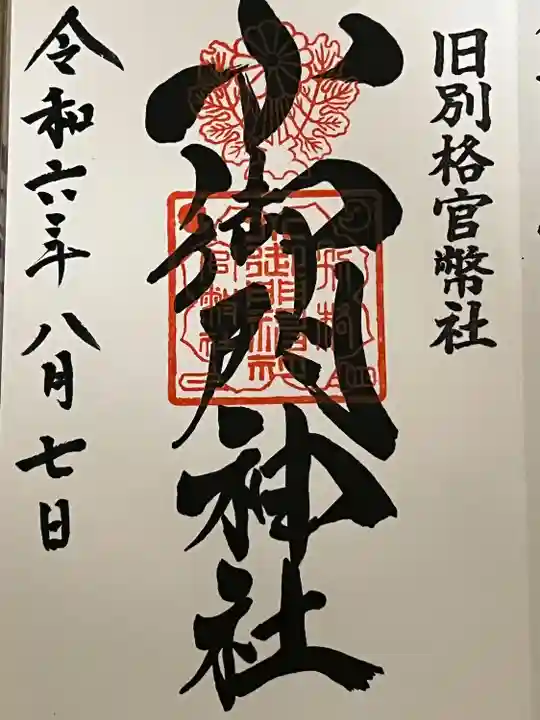 旧別格官幣社
小御門神社
令和六年八月七日